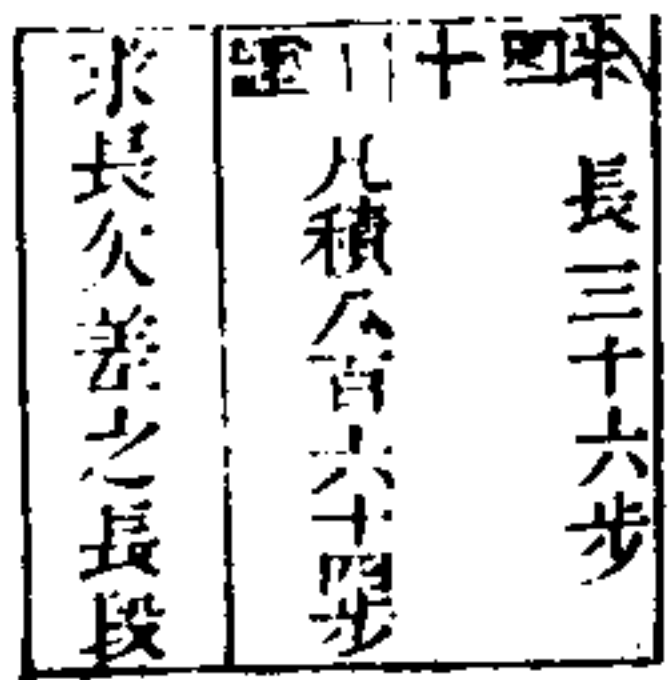 闊二十四步
長三十六步
積八百六十四步
求長欠差之長段